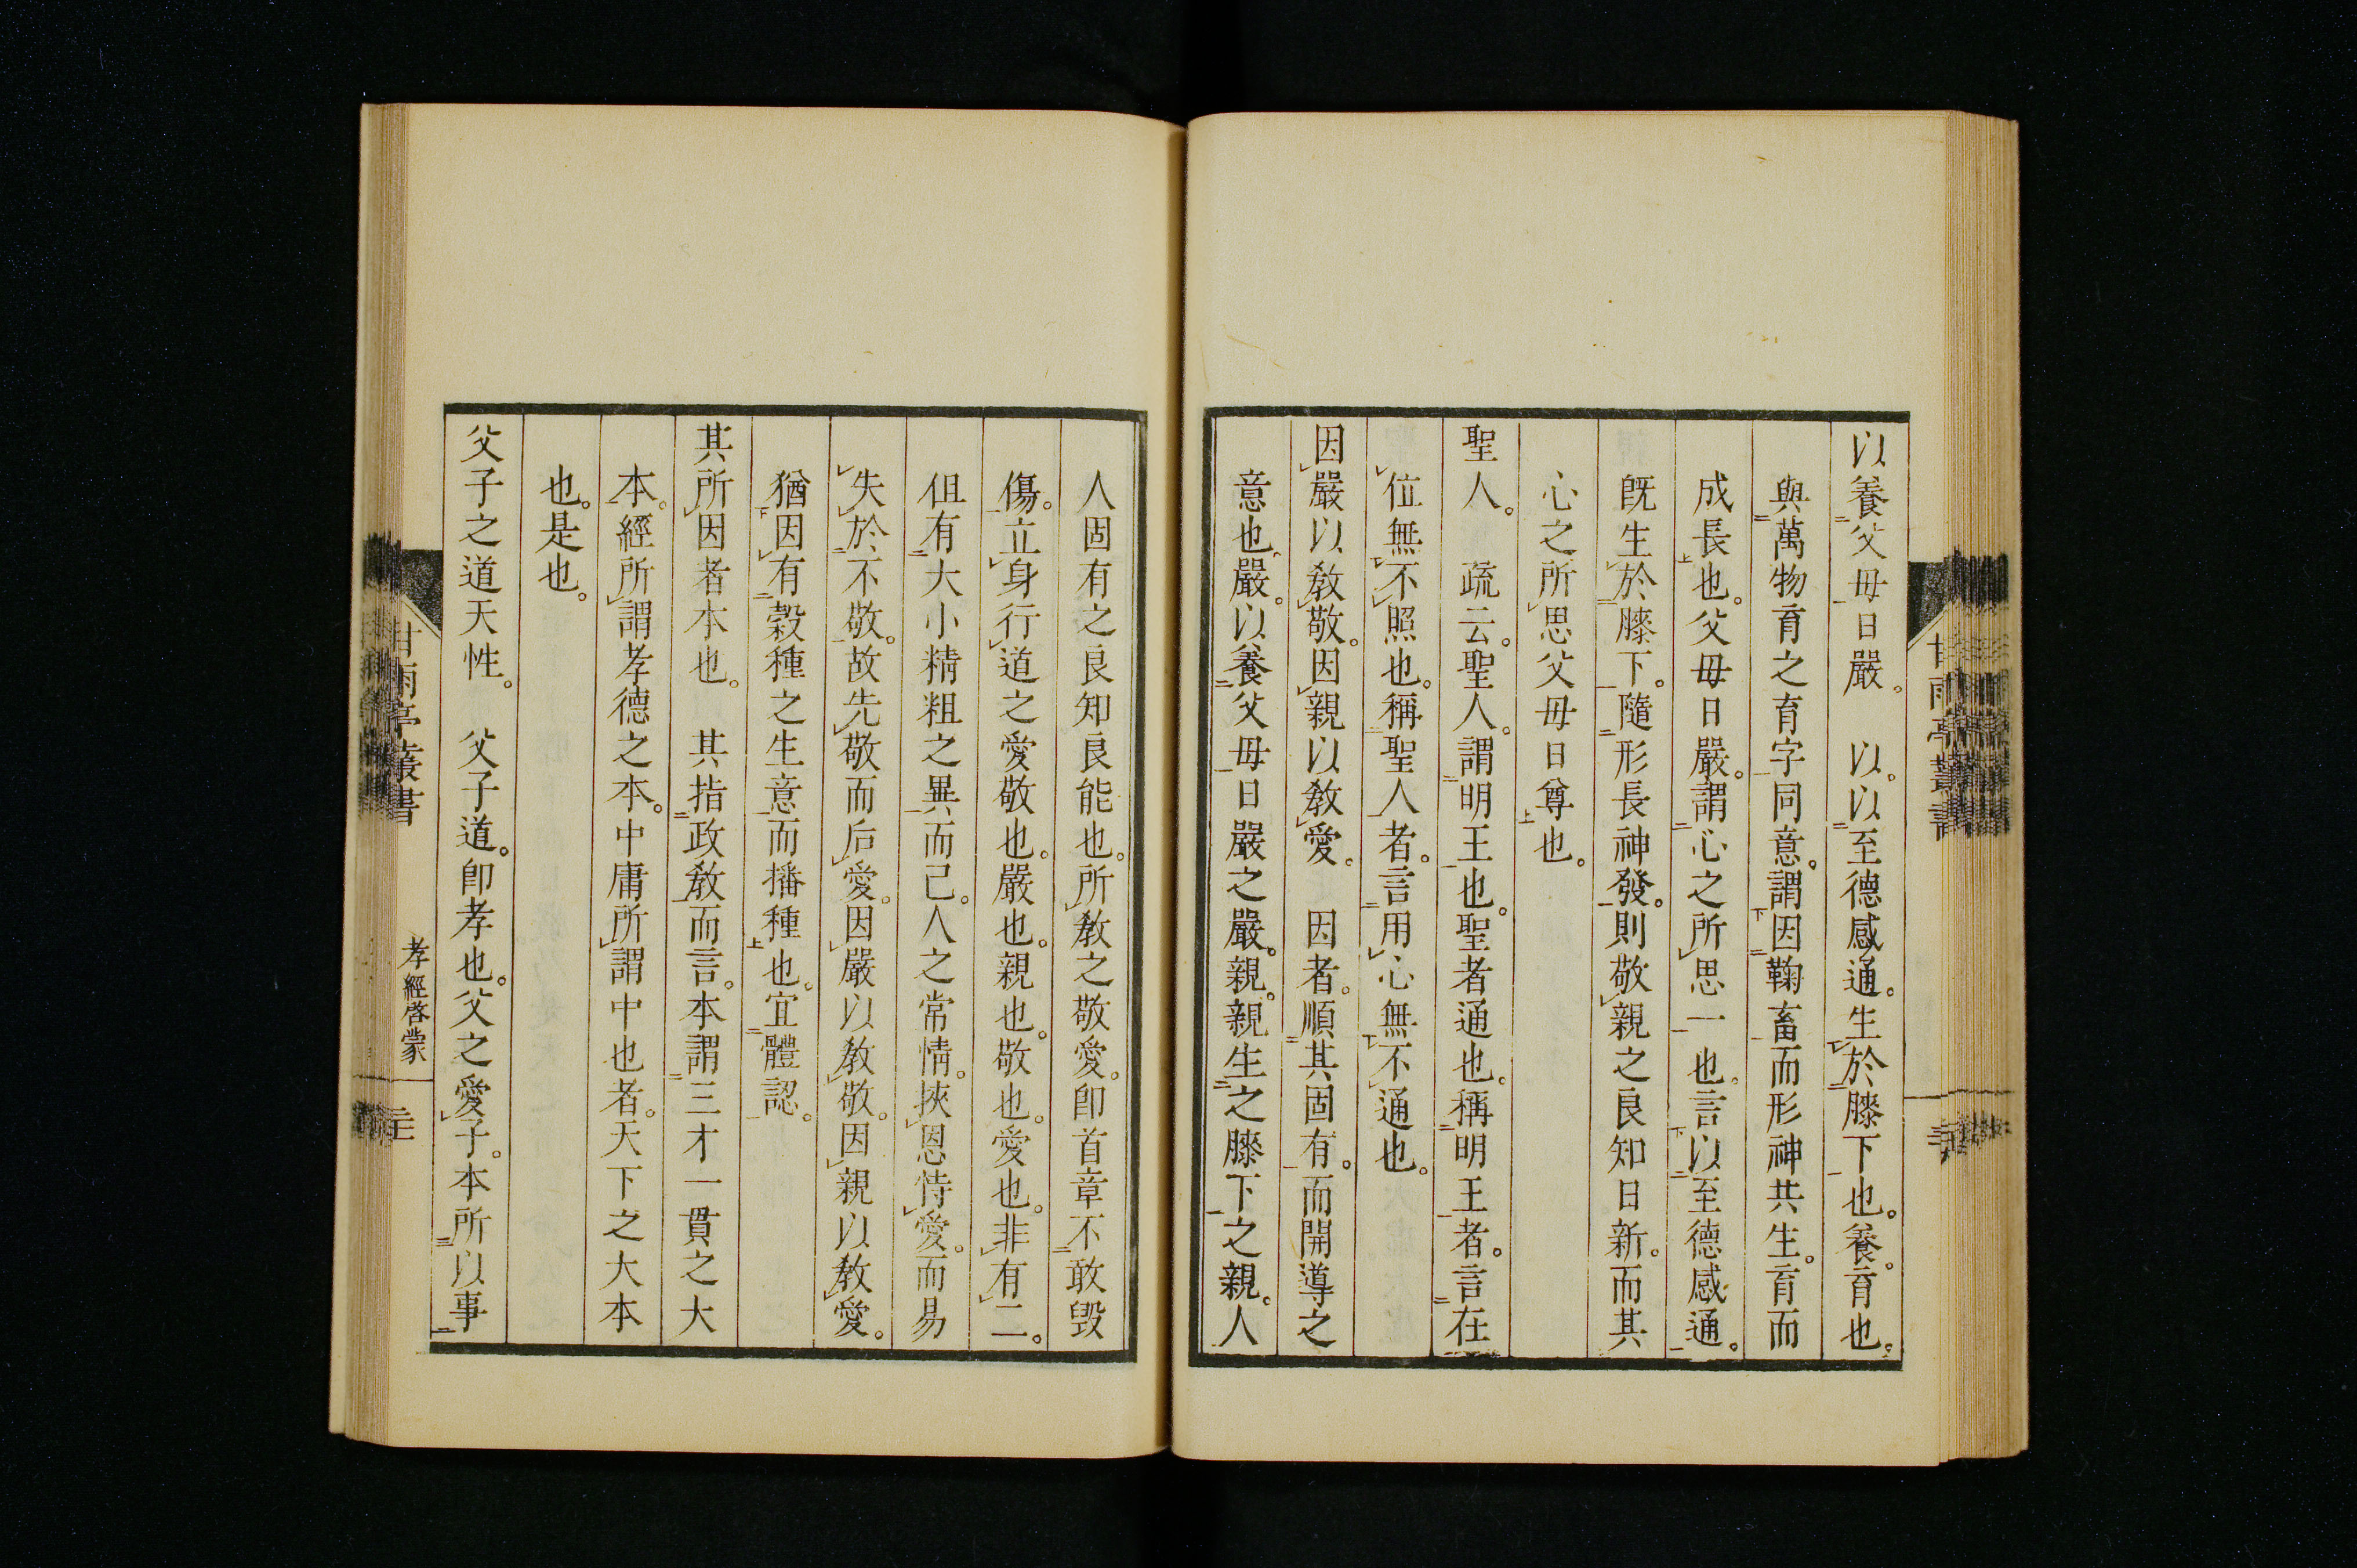 以養父母日嚴。　以。以至德感通。生於膝下也。養。育也。
與萬物育之育字同意。謂因鞠畜而形神共生。育而
成長也。父母日嚴。謂心之所思一也。言以至德感通。
既生於膝下。隨形長神發。則敬親之良知日新。而其
心之所思父母日尊也。
聖人。　疏云。聖人。謂明王也。聖者通也。稱明王者。言在
位無不照也。稱聖人者。言用心無不通也。
因嚴以教敬。因親以教愛。　因者。順其固有。而開導之
意也。嚴。以養父母日嚴之嚴。親。親生之膝下之親。人
人固有之良知良能也。所教之敬愛。卽首章不敢毀
傷。立身行道之愛敬也。嚴也。親也。敬也。愛也。非有二。
但有大小精粗之異而已。人之常情。挾恩恃愛。而易
失於不敬。故先敬而后愛。因嚴以教敬。因親以教愛。
猶因有穀種之生意而播種也。宜體認。
其所因者本也。　其指政教而言。本謂三才一貫之大
本。經所謂孝德之本。中庸所謂中也者。天下之大本
也。是也。
父子之道天性。　父子道。卽孝也。父之愛子。本所以事
甘雨亭叢書
孝經啓蒙